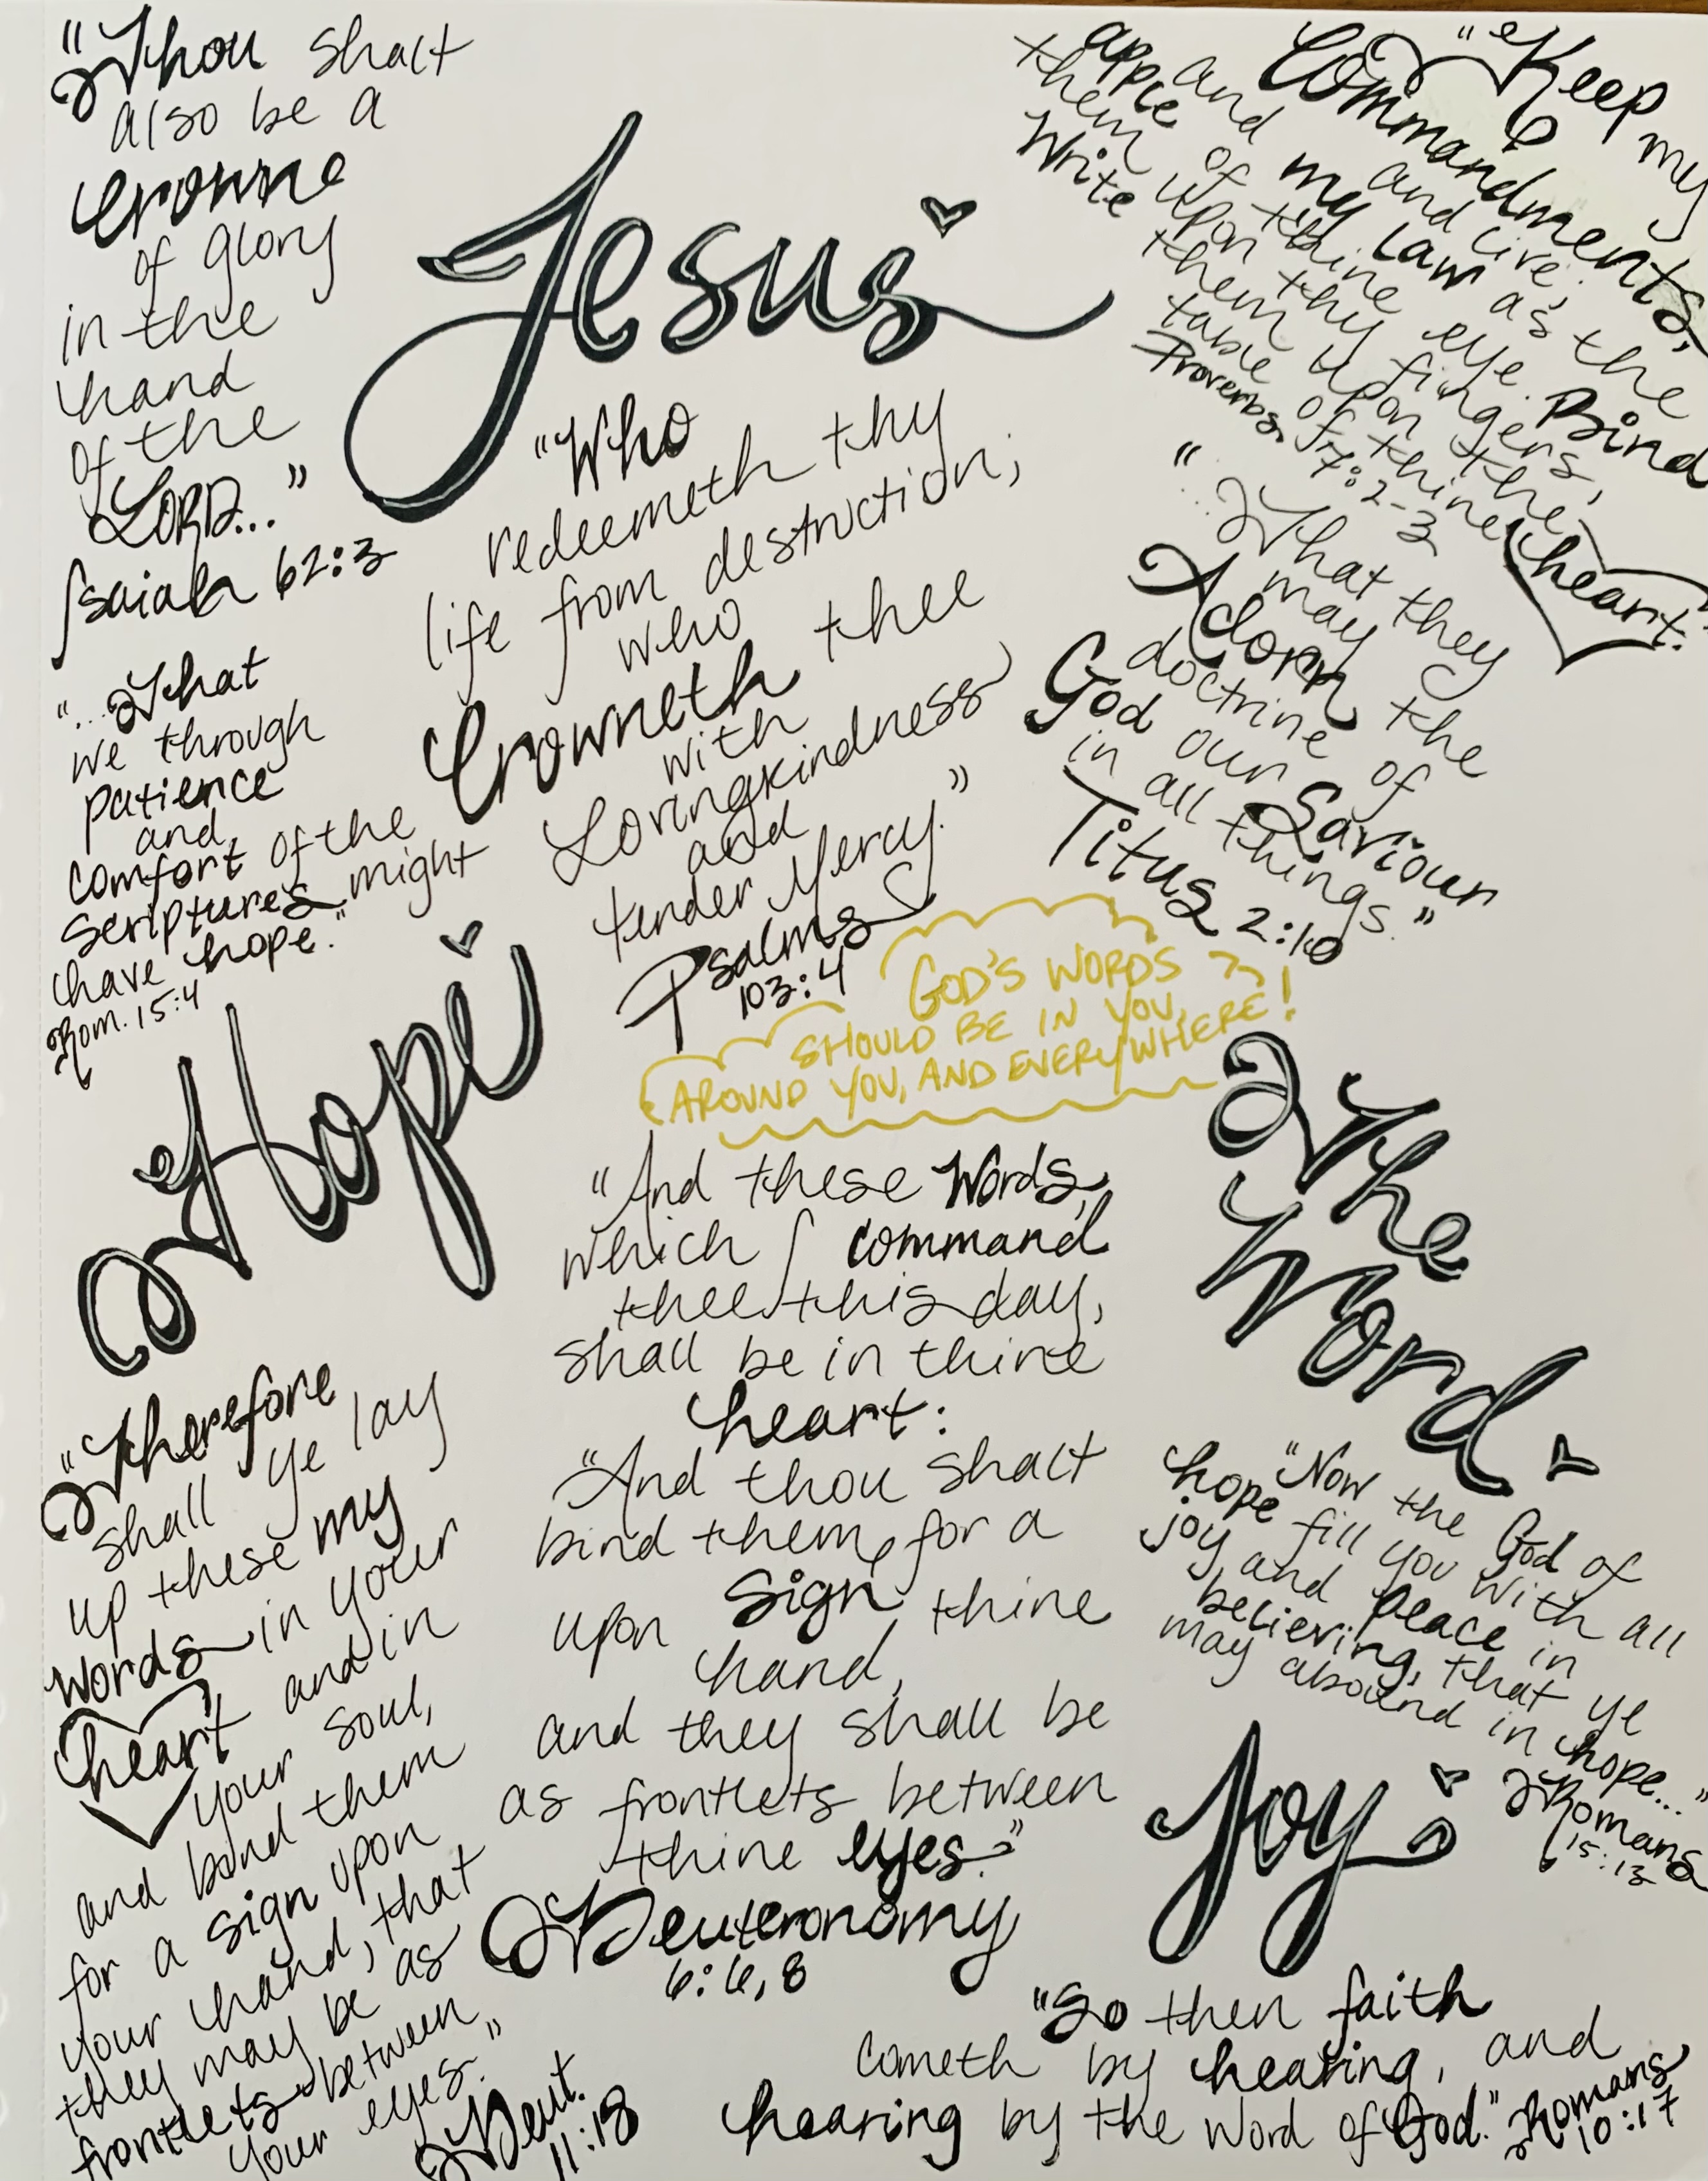 "Thou shalt
also be a
crowne
of glory
in the
hand
of the
LORD..."
Isaiah 62:3
Jesus
"Who
redeemeth thy
life from destruction;
who
Crowneth thee
with
Lovingkindness
and
tender Mercy."
Psalms
103:4
"Keep my
Commandments,
and live;
and my law as the
apple of thine eye. Bind
them upon thy fingers,
Write them upon the
table of thine heart."
Proverbs 7:2-3
"...That they
may
Adorn the
doctrine of
God our Saviour
in all things."
Titus 2:10
"...That
we through
patience
and
comfort of the
scriptures might
have hope."
Rom. 15:4
Hope
GOD'S WORDS
SHOULD BE IN YOU,
AROUND YOU, AND EVERYWHERE!
The
Word
"And these Words,
which I command
thee this day,
shall be in thine
heart:
"And thou shalt
bind them for a
sign upon thine
hand,
and they shall be
as frontlets between
thine eyes."
Deuteronomy
6:6,8
"Therefore
shall ye lay
up these my
words in your
heart and in
your soul,
and bind them
for a sign upon
your hand, that
they may be as
frontlets between
your eyes."
Deut.
11:18
"Now the God of
hope fill you with all
joy and peace in
believing, that ye
may abound in hope..."
Romans
15:13
Joy
"So then faith
cometh by hearing, and
hearing by the word of God."
Romans
10:17